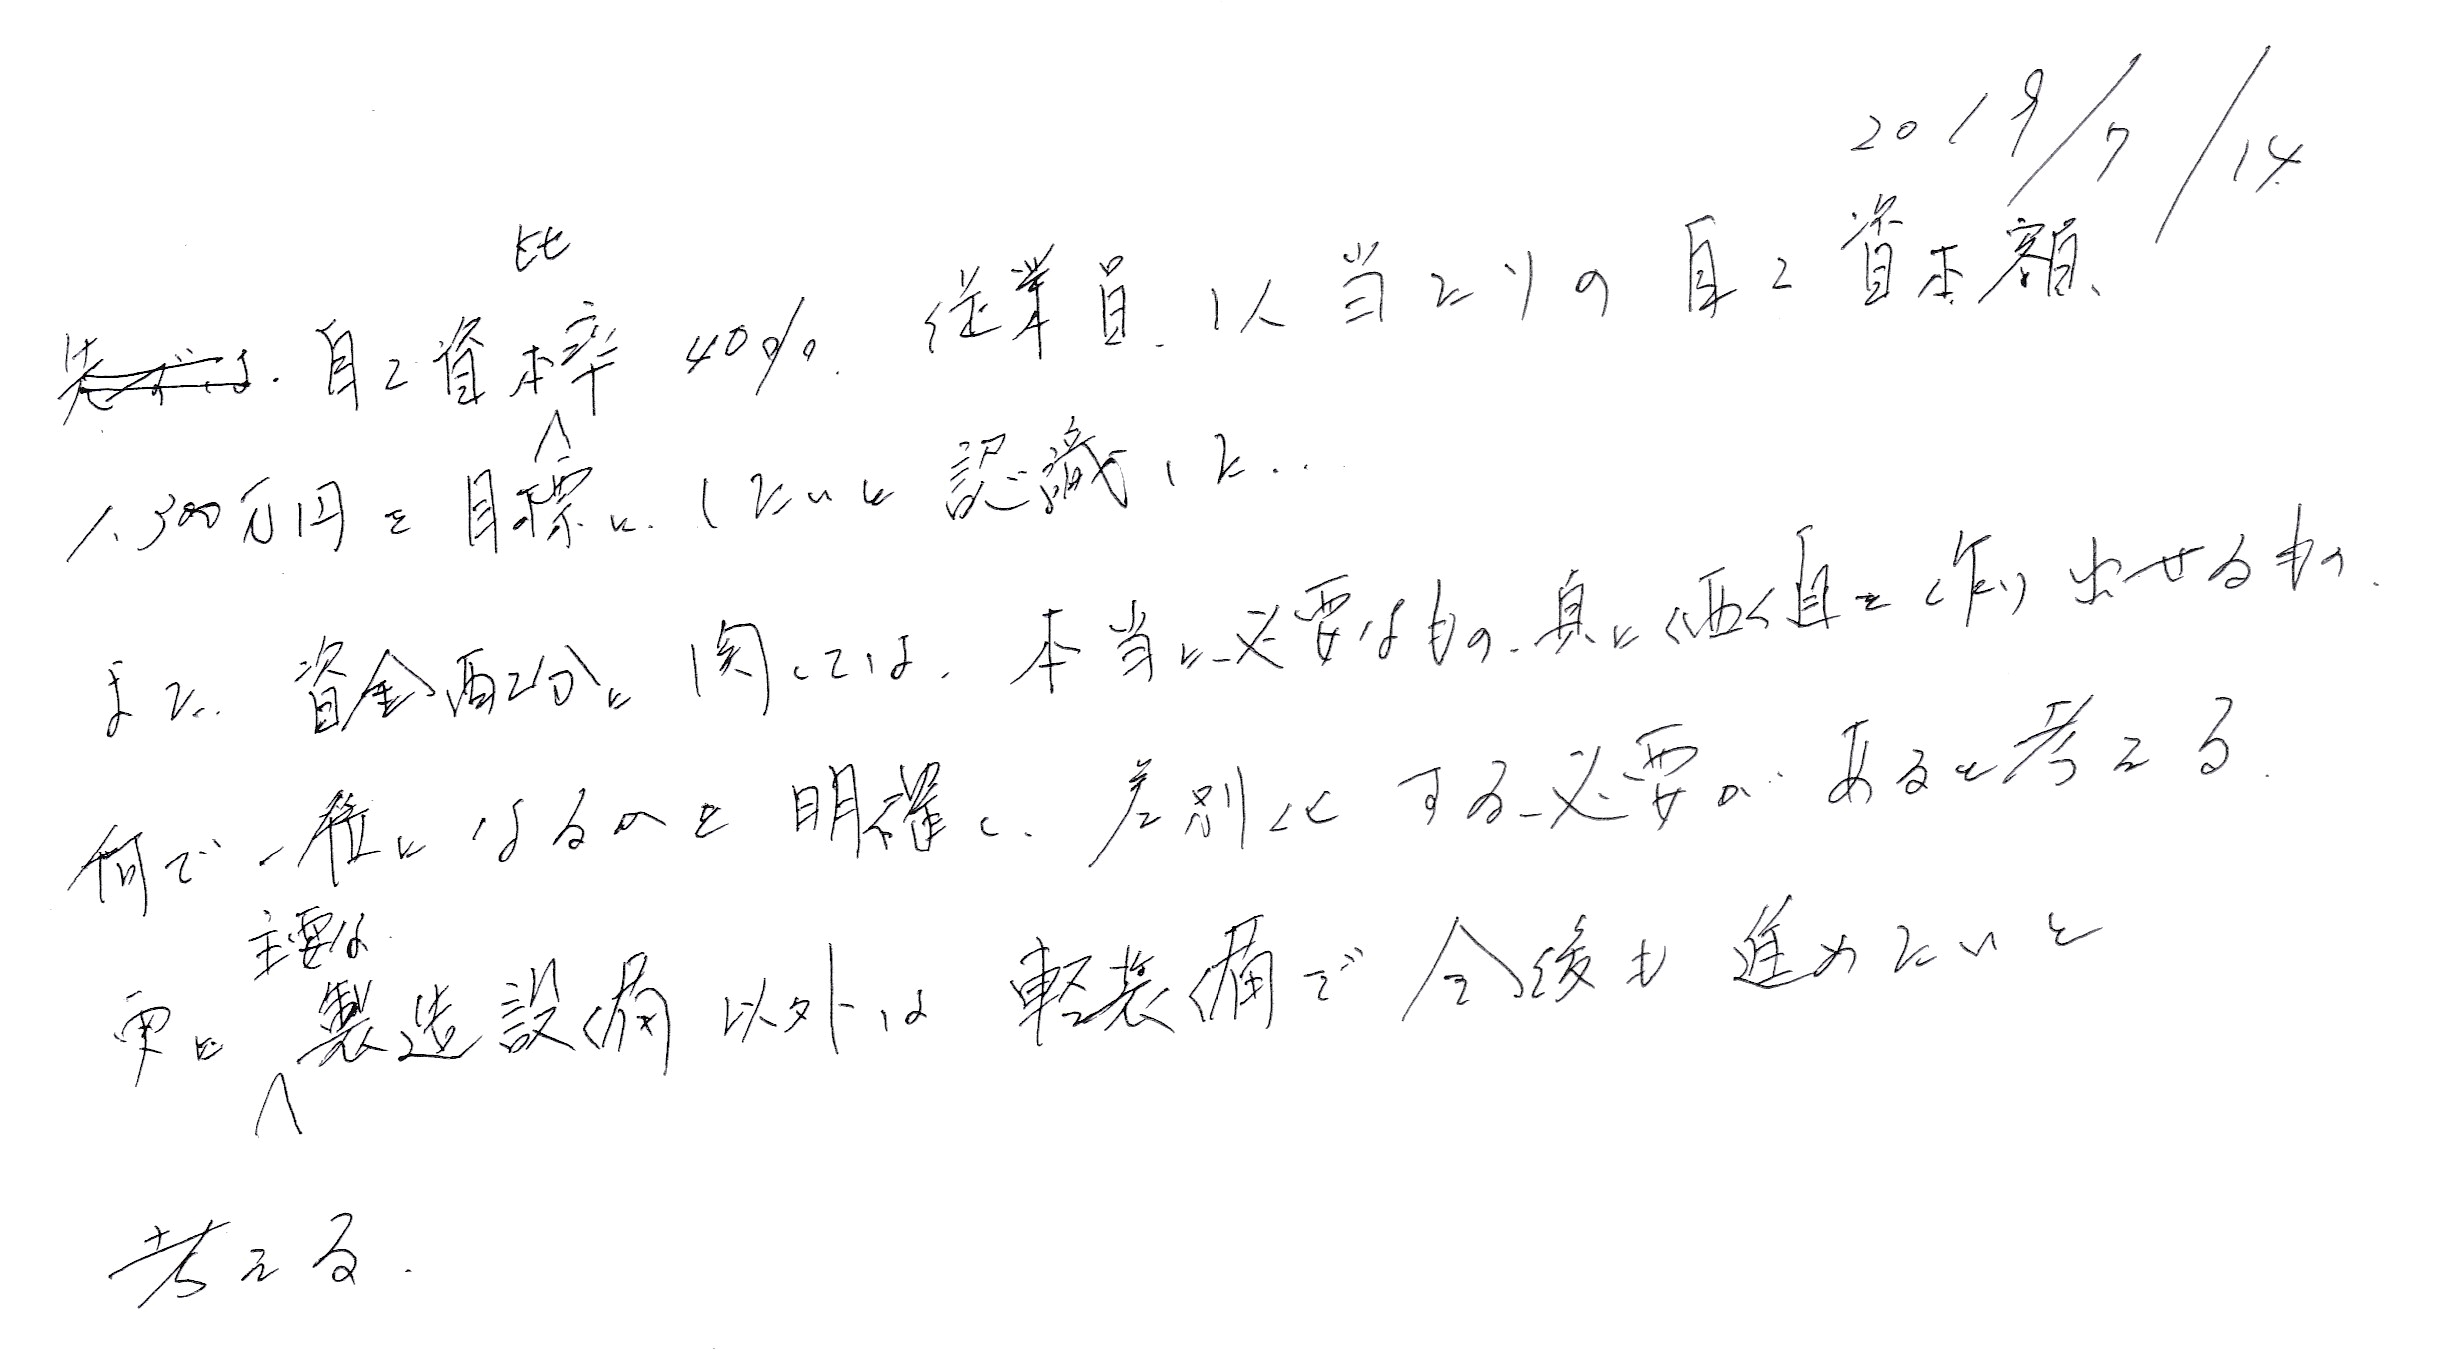 2019/7/14
自己資本比率40%、従業員、1人当たりの自己資本額、
1,300万円を目標に、したいと認識した..
また、資金配分に関しては、本当に必要なもの、真に価値を作り出せるもの、
何で一位になるかを明確にし、差別化する必要があると考える。
更に主要な製造設備以外は軽装備で今後も進めたいと
考える。